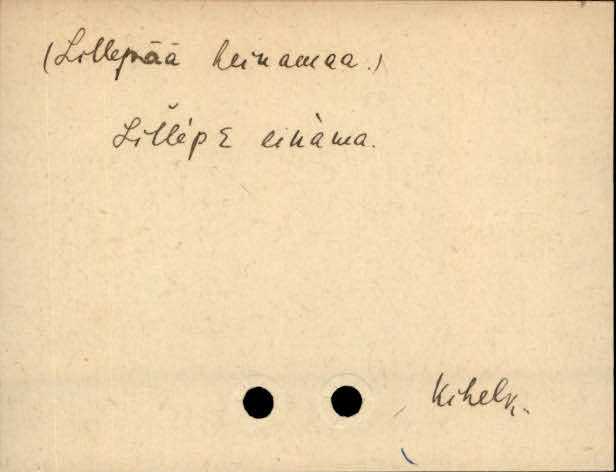 (Lillepää heinamaa.)
Lĭllèpɛ einàma.
Kihelk.